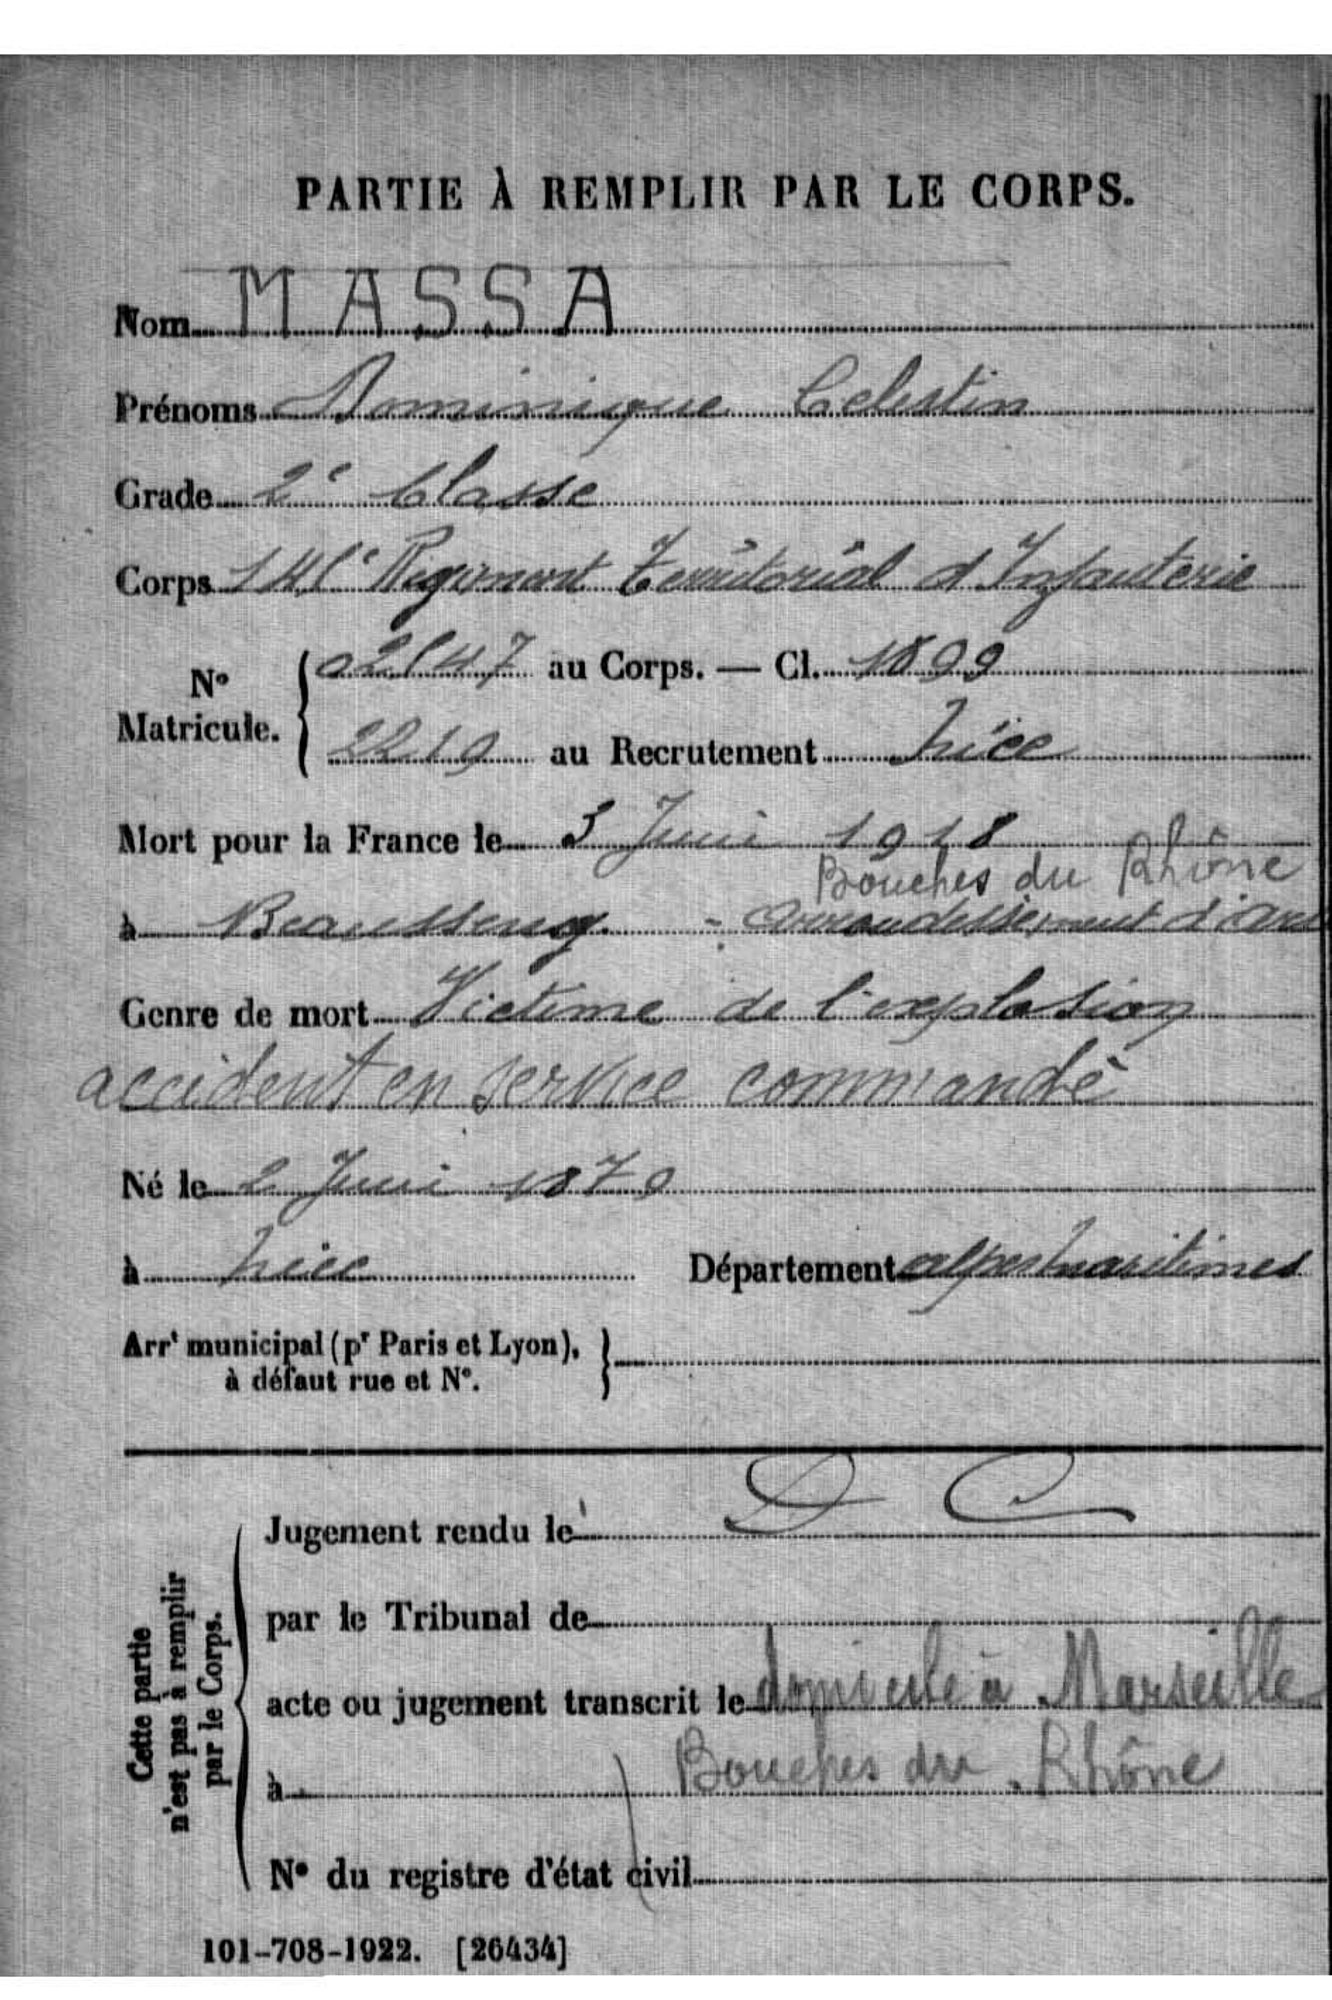 PARTIE À REMPLIR PAR LE CORPS.
Nom MASSA
Prénoms Dominique Celestin
Grade 2e Classe
Corps 141e Regiment Territorial d'Infanterie
No Matricule. { 02147 au Corps. — Cl. 1899
2219 au Recrutement Nice
Mort pour la France le 5 Juin 1918
Bouches du Rhône
à - arrondissement d'
Genre de mort Victime de l'explosion
accident en service commandé
Né le 2 Juin 1879
à Nice Département alpes maritimes
Arrt municipal (pr Paris et Lyon),
à défaut rue et No.
D C
Jugement rendu le
par le Tribunal de
acte ou jugement transcrit le domicile à Marseille
à Bouches du Rhône
No du registre d'état civil
Cette partie
n'est pas à remplir
par le Corps.
101-708-1922. [26434]